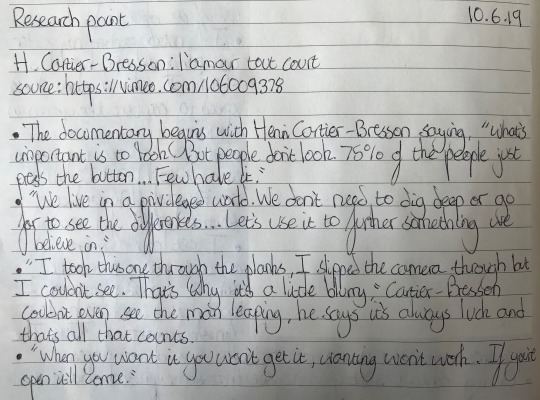 Research point 10.6.19
H. Cartier-Bresson: l'amour tout court
source: https://vimeo.com/106009378
• The documentary begins with Henri Cartier-Bresson saying, "what's
important is to look. But people don't look. 75% of the people just
press the button... Few have it."
• "We live in a privileged world. We don't need to dig deep or go
far to see the differences... Let's use it to further something we
believe in."
• "I took this one through the planks, I slipped the camera through but
I couldn't see. That's why it's a little blurry." Cartier-Bresson
couldn't even see the man leaping, he says it's always luck and
thats all that counts.
• "When you want it you won't get it, wanting won't work. If you're
open it'll come."